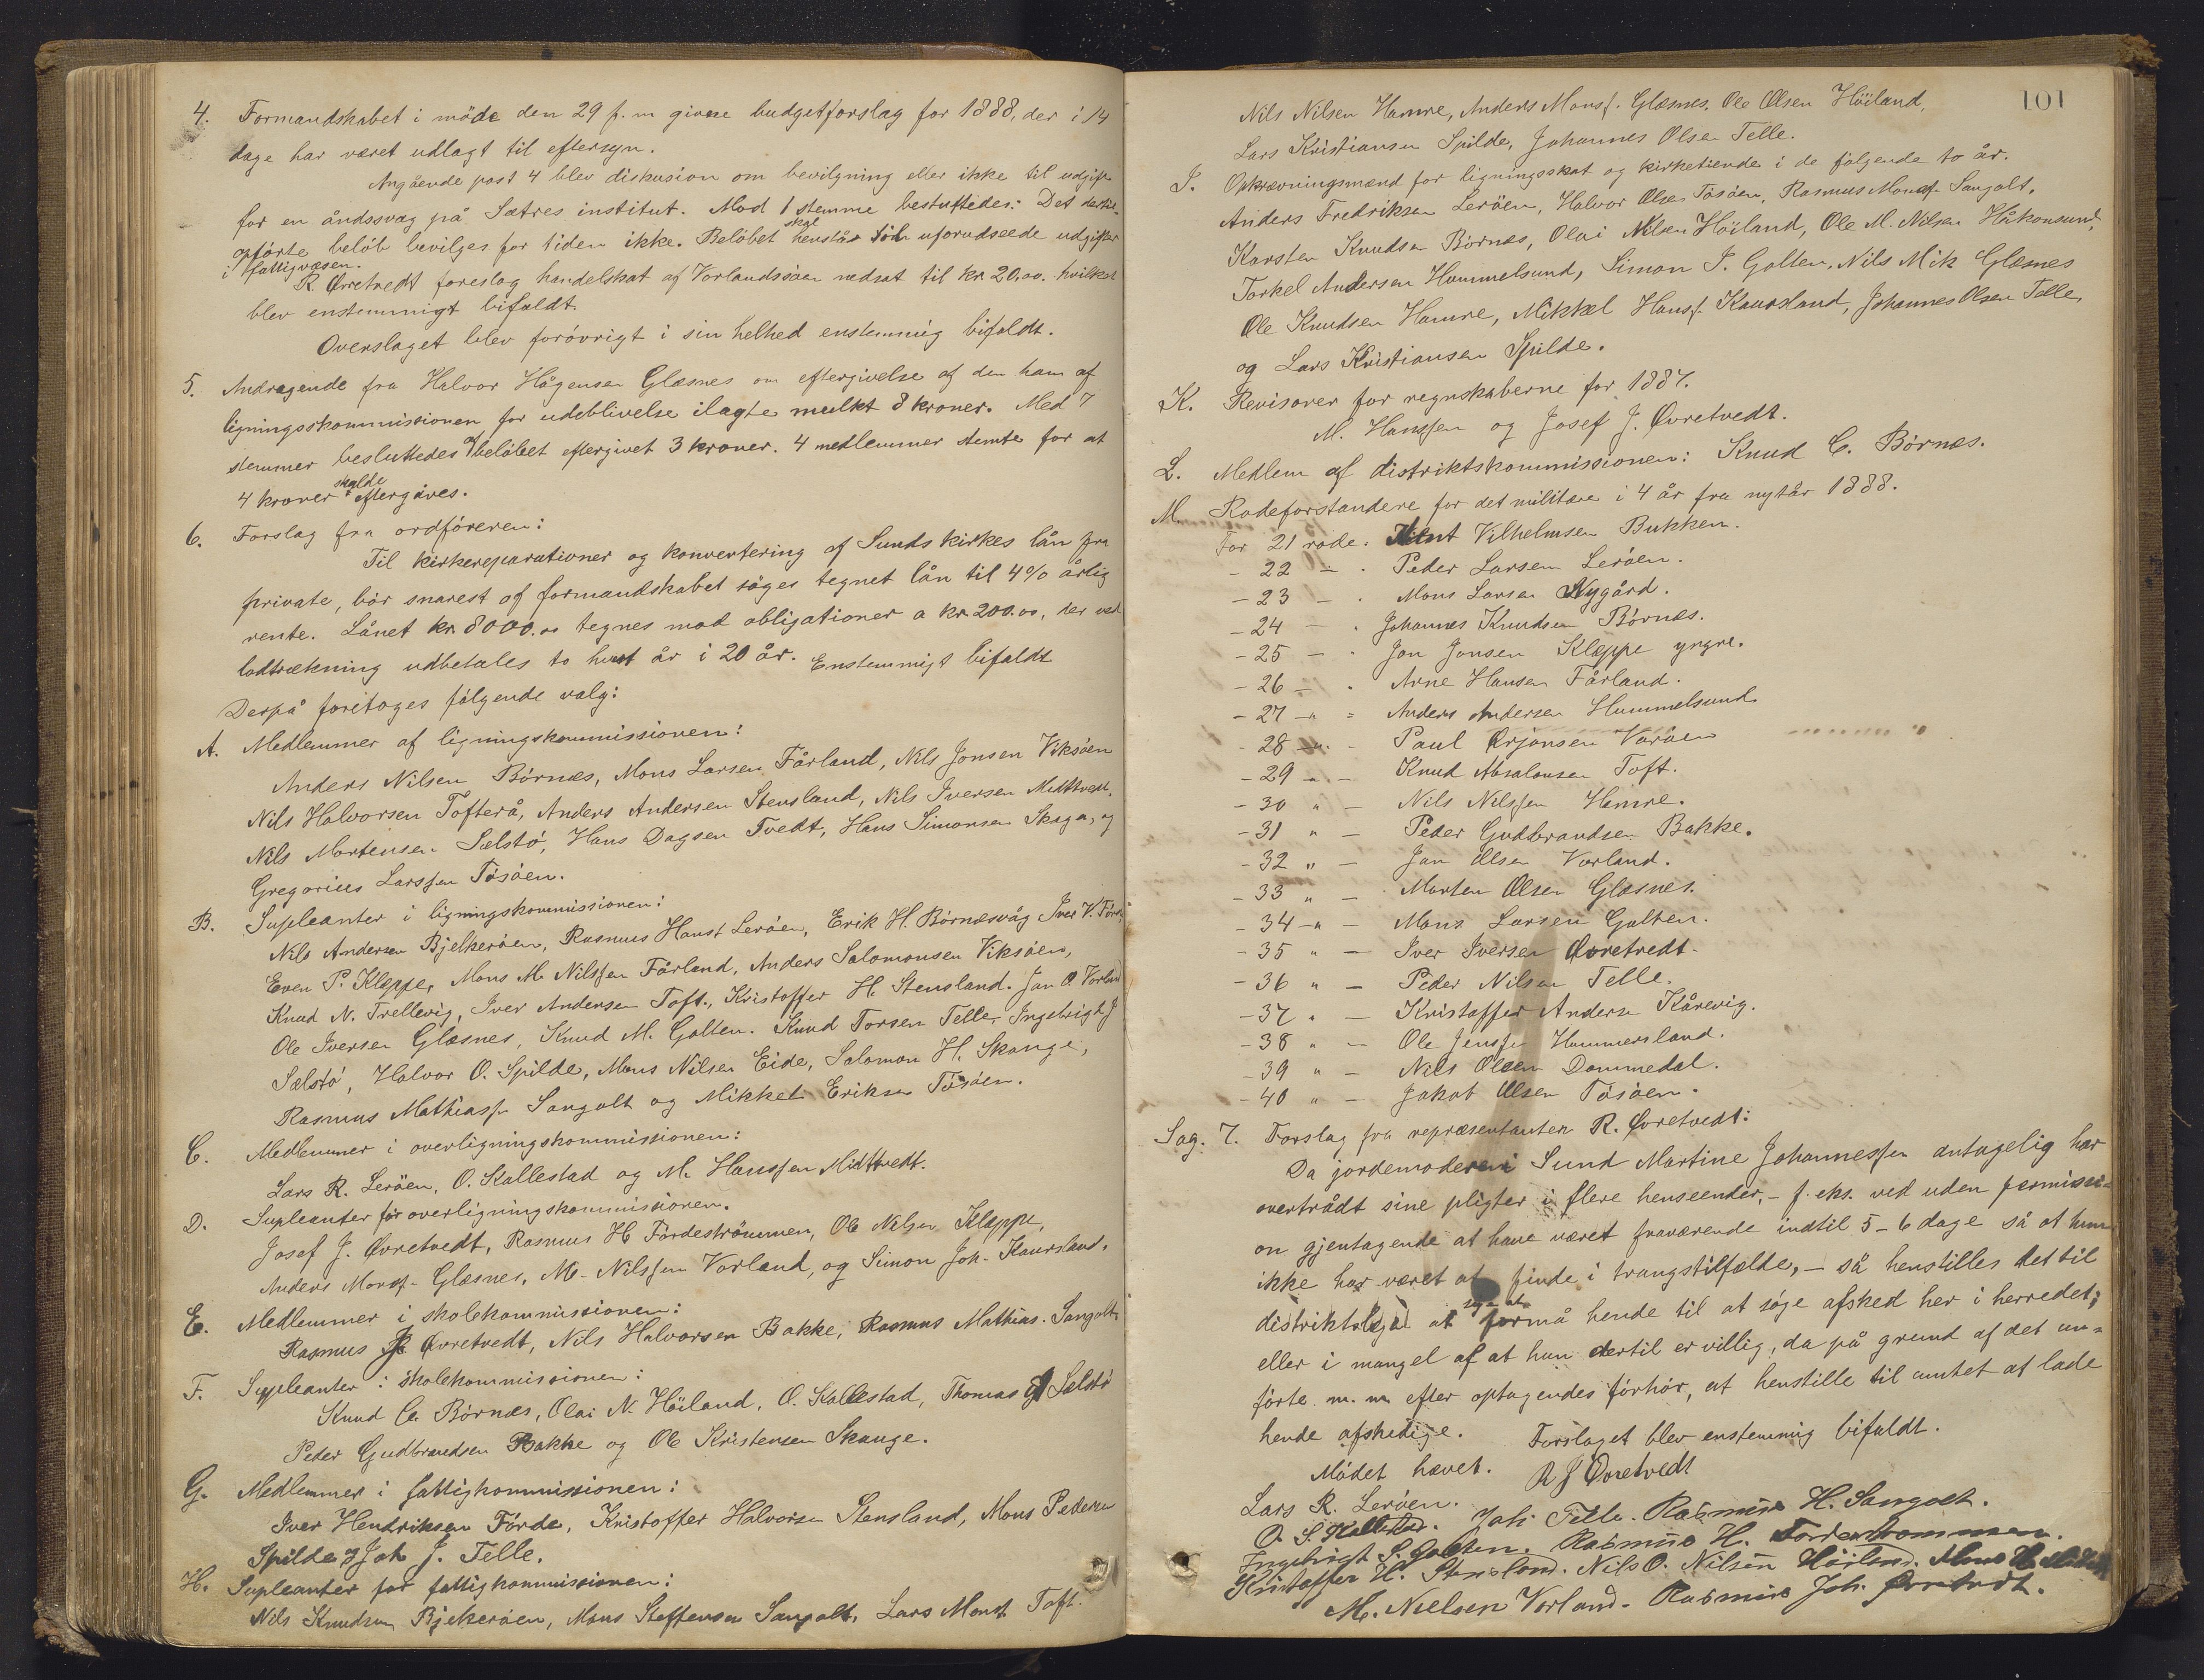 4. Formandskabet i möde den 29 f. m givne budgetforslag for 1888, der i 14
dage har været udlagt til eftersyn.
Angående post 4 blev diskusion om bevilgning eller ikke til udgift
for en åndssvag på Sætres institut. Mod 1 stemme besluttedes: Det dertil
opförte belöb bevilges for tiden ikke. Belöbet skal henstå til uforudseede udgifter
i fattigvæsen.
R. Øvretvedt foreslog handelskat af Vorlandsöen nedsat til kr 20,00. hvilket
blev enstemmigt bifaldt.
Overslaget blev forövrigt i sin helhed enstemmig bifaldt.
5. Andragende fra Halvor Hågensen Glæsnes om eftergivelse af den ham af
ligningskommissionen for udeblivelse ilagte mulkt 8 kroner. Med 7
stemmer besluttedes af belöbet eftergivet 3 kroner. 4 medlemmer stemte for at
4 kroner skulde eftergives.
6. Forslag fra ordföreren:
Til kirkereparationer og konvertering af Sunds kirkes lån fra
private, bör snarest af formandskabet söges tegnet lån til 4% årlig
rente. Lånet kr. 8000.00 tegnes mod obligationer a kr. 200.00, der ved
lodtrækning udbetales to hvert år i 20 år. Enstemmigt bifaldt
Derpå foretoges fölgende valg:
A. Medlemmer af ligningskommissionen:
Anders Nilsen Börnæs, Mons Larsen Fårland, Nils Jonsen Viksöen
Nils Halvorsen Tofterå, Anders Andersen Stensland, Nils Iversen Midttvedt,
Nils Mortensen Sælstö, Hans Dagsen Tvedt, Hans Simonsen Skaga, og
Gregorius Larssen Tösöen.
B. Supleanter i ligningskommissionen:
Nils Andersen Bjelkeröen, Rasmus Hansf Leröen, Erik H. Börnæsvåg Iver V. Förde
Even P. Kleppe, Mons M. Nilssen Fårland, Anders Salomonsen Viksöen,
Knud N. Trellevig, Iver Andersen Toft., Kristoffer H. Stensland. Jan O. Vorland
Ole Iversen Glæsnes, Knud M. Golten. Knud Torsen Telle, Ingebrigt J
Sælstö, Halvor O. Spilde, Mons Nilsen Eide, Salomon H. Skange,
Rasmus Mathiasf. Sangolt og Mikkel Eriksen Tösöen.
C. Medlemmer i overligningskommissionen:
Lars R. Leröen, O. Kallestad og M. Hanssen Midttvedt.
D. Supleanter för overligningskommissionen.
Josef J. Øvretvedt, Rasmus H Fördeströmmen, Ole Nilsen Kleppe,
Anders Monsf. Glæsnes, M. Nilssen Vorland, og Simon Joh. Kaursland.
E. Medlemmer i skolekommissionen:
Rasmus J. Øvretvedt, Nils Halvorsen Bakke, Rasmus Mathias. Sangolt
F. Suppleanter i skolekommissionen:
Knud C. Börnæs, Olai N. Höiland, O. Kallestad, Thomas J Sælstö
Peder Gudbrandsen Bakke og Ole Kristensen Skange.
G. Medlemmer i fattigkommissionen:
Iver Hendriksen Förde, Kristoffer Halvorsen Stensland, Mons Pedersen
Spilde og Joh J. Telle.
H. Supleanter for fattigkommissionen:
Nils Knudsen Bjelkeröen, Mons Steffensen Sangolt, Lars Monsf. Toft.
101
Nils Nilsen Hamre, Anders Monsf. Glæsnes. Ole Olsen Höiland,
Lars Kristiansen Spilde, Johannes Olsen Telle.
I. Opkrævningsmænd for ligningsskat og kirketiende i de fölgende to år.
Anders Fredriksen Leröen, Halvor Olsen Tösöen, Rasmus Monsf. Sangolt,
Karsten Knudsen Börnæs, Olai Nilsen Höiland, Ole M. Nilsen Håkonsund,
Torkel Andersen Hummelsund, Simon I. Golten, Nils Mik Glæsnes
Ole Knudsen Hamre, Mikkel Hansf. Kaursland, Johannes Olsen Telle,
og Lars Kristiansen Spilde.
K. Revisorer for regnskaberne for 1887.
M. Hanssen og Josef J. Øvretvedt.
L. Medlem af distriktskommissionen: Knud C. Börnæs.
M. Rodeforstandere for det militære i 4 år fra nytår 1888.
For 21 rode. Vilhelmsen Bukken.
- 22 - . Peder Larsen Leröen.
- 23 - . Mons Larsen Nygård.
- 24 - . Johannes Knudsen Börnæs.
- 25 - . Jon Jonsen Kleppe yngre.
- 26 - . Arne Hansen Fårland.
- 27 - " - Anders Andersen Hummelsund
- 28 - " - Paul Ørjansen Varöen
- 29 - " - Knud Absalonsen Toft.
- 30 " - Nils Nilssen Hamre.
- 31 " - Peder Gudbrandsen Bakke.
- 32 " - Jan Olsen Vorland.
- 33 " - Morten Olsen Glæsnes.
- 34 - " - Mons Larsen Golten.
- 35 " - Iver Iversen Øvretvedt.
- 36 " - Peder Nilsen Telle.
- 37 " - Kristoffer Andersen Kårevig.
- 38 " - Ole Jenssen Hammersland.
- 39 " - Nils Olsen Dommedal.
- 40 " - Jakob Olsen Tösöen.
Sag. 7. Forslag fra repræsentanten R. Øvretvedt:
Da jordemoderen i Sund Martine Johannessen antagelig har
overtrådt sine pligter i flere henseender, - f. eks. ved uden permissi-
on gjentagende at have været fraværende indtil 5-6 dage så at hun
ikke har været at finde i trangstilfælde, - så henstilles det til
distriktslægen at söge at formå hende til at söge afsked her i herredet,
eller i mangel af at hun dertil er villig, da på grund af det an-
förte m. m efter optagendes förhör, at henstille til amtet at lade
hende afskedige. Forslaget blev enstemmig bifaldt.
Mödet hævet. R J Øvretvedt
Lars R. Leröen. Joh Telle. Rasmus H. Sangolt.
O. S. Kallestad. Rasmus H. Fordestrommen.
Ingebrigt S. Golten.
Kristoffer H. Stensland. Nils O. Nilsen Höiland. Mons H.
M. Nielsen Vorland. Rasmus Joh. Øvretvedt.